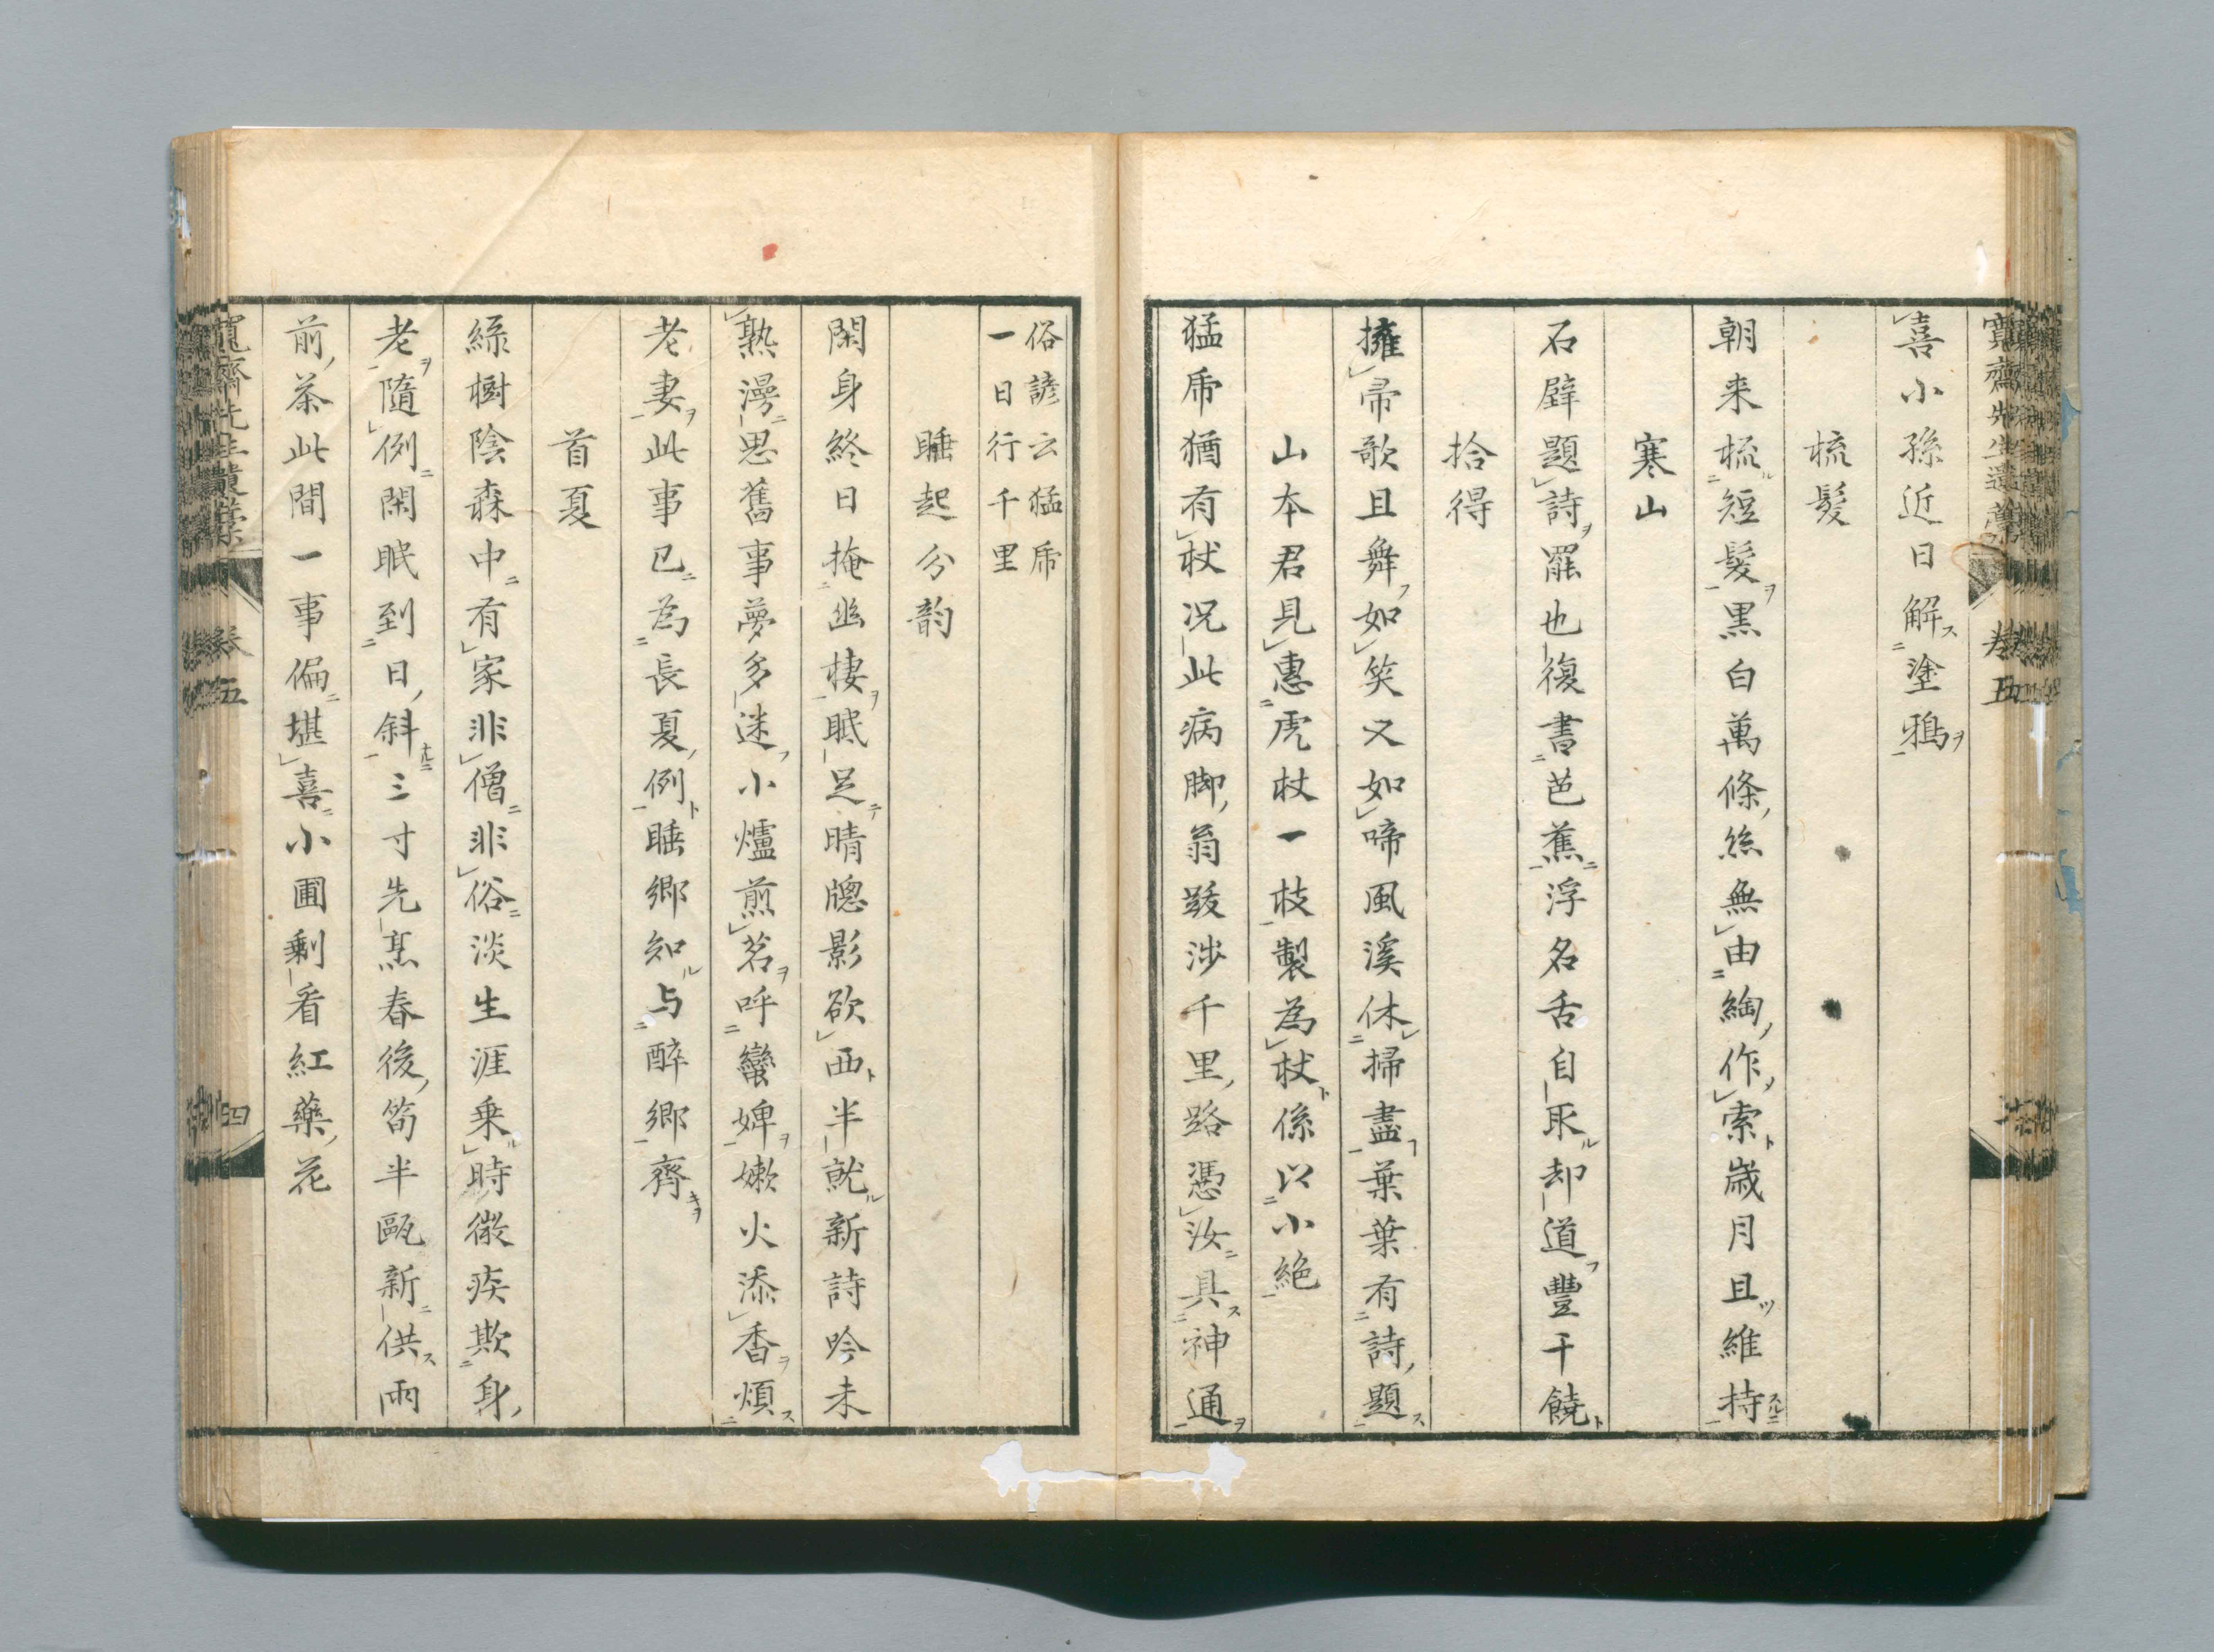 喜小孫近日解塗鴉
梳髮
朝来梳短髮黒白萬條絲無由綯作索歳月且維持
寒山
石壁題詩罷也復書芭蕉浮名舌自取却道豐干饒
拾得
擁帚歌且舞如笑又如啼風溪休掃盡葉葉有詩題
山本君見惠虎杖一枝製為杖係以小絶
猛乕猶有杖况此病脚翁跋渉千里路憑汝具神通
俗諺云猛乕
一日行千里
睡起分韵
閑身終日掩幽棲眠足晴牕影欲西半就新詩吟未
熟漫思舊事夢多迷小爐煎茗呼蠻婢嫰火添香煩
老妻此事已為長夏例睡鄉知与醉鄉齊
首夏
綠樹陰森中有家非僧非俗淡生涯乗時微疾欺身
老隨例閑眠到日斜三寸先烹春後筍半甌新供雨
前茶此間一事偏堪喜小圃剩看紅藥花
卷五
四